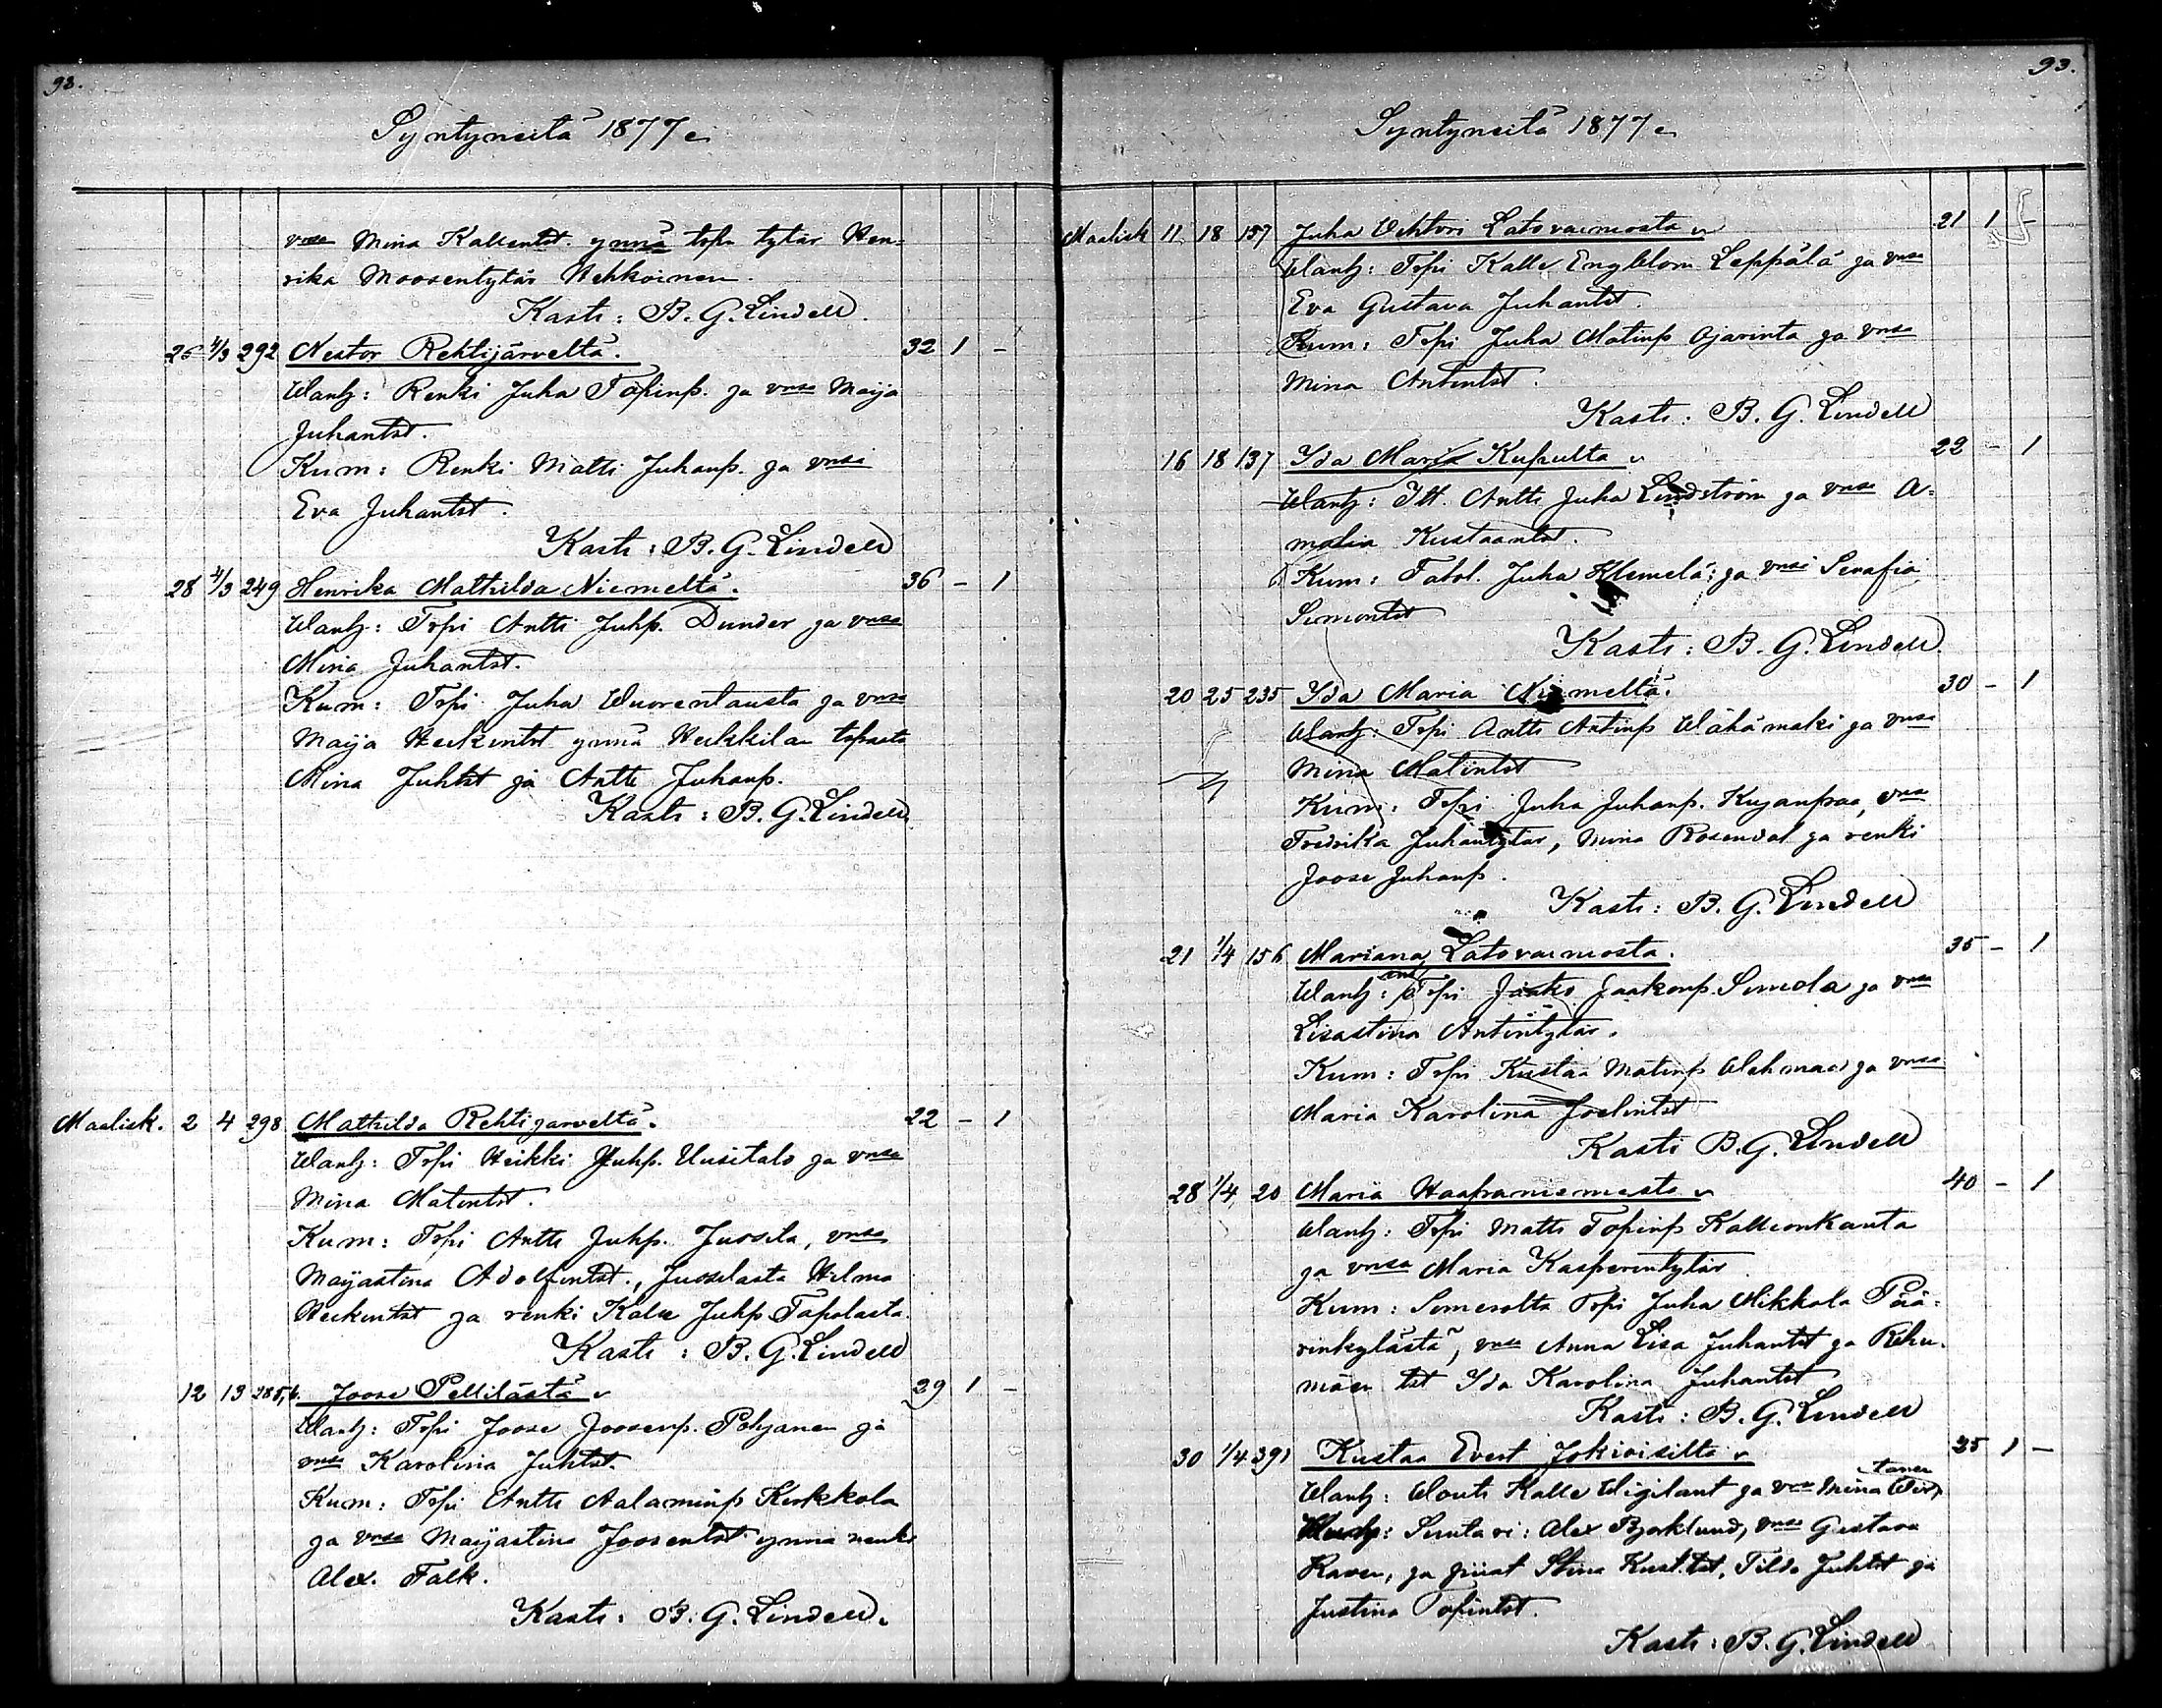 93.
Syntyneitä 1877
vmsa Mina Kallentst. ynnä topr tytär Hen=
rika Moosentytär Hehkoinen.
Kasti: B. G. Lindell.
26 4/3 292 Nestor Rehtijärveltä. 32 1 -
Wanh: Renki Juha Topinp. ja vmsa Maija
Juhantst.
Kum: Renki Matti Juhanp. ja vmsi
Eva Juhantst.
Kasti: B. G. Lindell
28 4/3 249 Henrika Mathilda Niemeltä. 36 - 1
Wanh: Topi Antti Juhp. Dunder ja vmsa
Mina Juhantst.
Kum: Topi Juha Wuorentausta ja vmsa
Maija Heikintst ynnä Heikkilän
Mina Juhtst ja Antti Juhanp.
Kasti: B. G. Lindell.
Maalisk. 2 4 298 Mathilda Rehtijärveltä. 22 - 1
Wanh: Topi Heikki Juhp. Uusitalo ja vmsa
Mina Matintst.
Kum: Topi Antti Juhp. Juosila, vmsa
Maijastina Adolfintst., Juosilasta Hilma
Heikintst ja renki Kalle Juhp. Tapolasta.
Kasti: B. G. Lindell
12 13 285,b. Joose Pellilästä 29 1 -
Wanh: Topi Joose Joosenp. Pohjanen ja
vmsa Karolina Juhtst.
Kum: Topi Antti Aalaminp Kirkkola
ja vmsa Maijastina Joosentst ynnä renki
Alex. Falk.
Kasti: B. G. Lindell.
93.
Syntyneitä 1877
Maalisk 11 18 157 Juha Vihtori Latovainiosta 21 1 -
Wanh: Topi Kalle Engblom Leppälä ja vmsa
Eva Gustava Juhantst
Kum: Topi Juha Matinp Ojarinta ja vmsa
Mina Antintst.
Kasti: B. G. Lindell
16 18 137 Ida Maria Kuhulta 22 - 1
Wanh: Itl. Antti Juha Lindström ja vmsa A=
malia Kustaantst.
Kum: Talol. Juha Klemelä ja vmsi Serafia
Simontst
Kasti: B. G. Lindell.
20 25 235 Ida Maria Niemeltä. 30 - 1
Wanh: Topi Antti Antinp Wähämäki ja vmsa
Mina Matintst
Kum: Topi Juha Juhanp. Kujanpää, vmsa
Fredrika Juhantytär, Mina Rosendal ja renki
Joose Juhanp.
Kasti: B. G. Lindell
21 1/4 156 Mariana Latovainiosta. 35 - 1
Wanh: Topi Jaako Jaakonp. Simola ja vmsa
Lisastina Antintytär.
Kum: Topi Kustaa Matinp Wehmaa ja vmsa
Maria Karolina Joelintst
Kasti B. G. Lindell
28 1/4 20 Maria Haapaniemestä 40 - 1
Wanh: Topi Matti Topinp Kallionkanta
ja vmsa Maria Kasperintytär
Kum: Somerolta Topi Juha Mikkola Pää=
rinkylästä, vmsa Anna Lisa Juhantst ja Rihu=
mäen tst Ida Karolina Juhantst
Kasti: B. G. Lindell
30 1/4 391 Kustaa Evert Jokioisilta 35 1 -
Wanh: Wouti Kalle Wigilant ja vmsa Mina Wir,
tanen
Suutari: Alex Bjorklund, vmsa Gustava
Raven, ja piiat Stina Kust.tst, Tilda Juhtst ja
Justina Topintst.
Kasti: B. G. Lindell